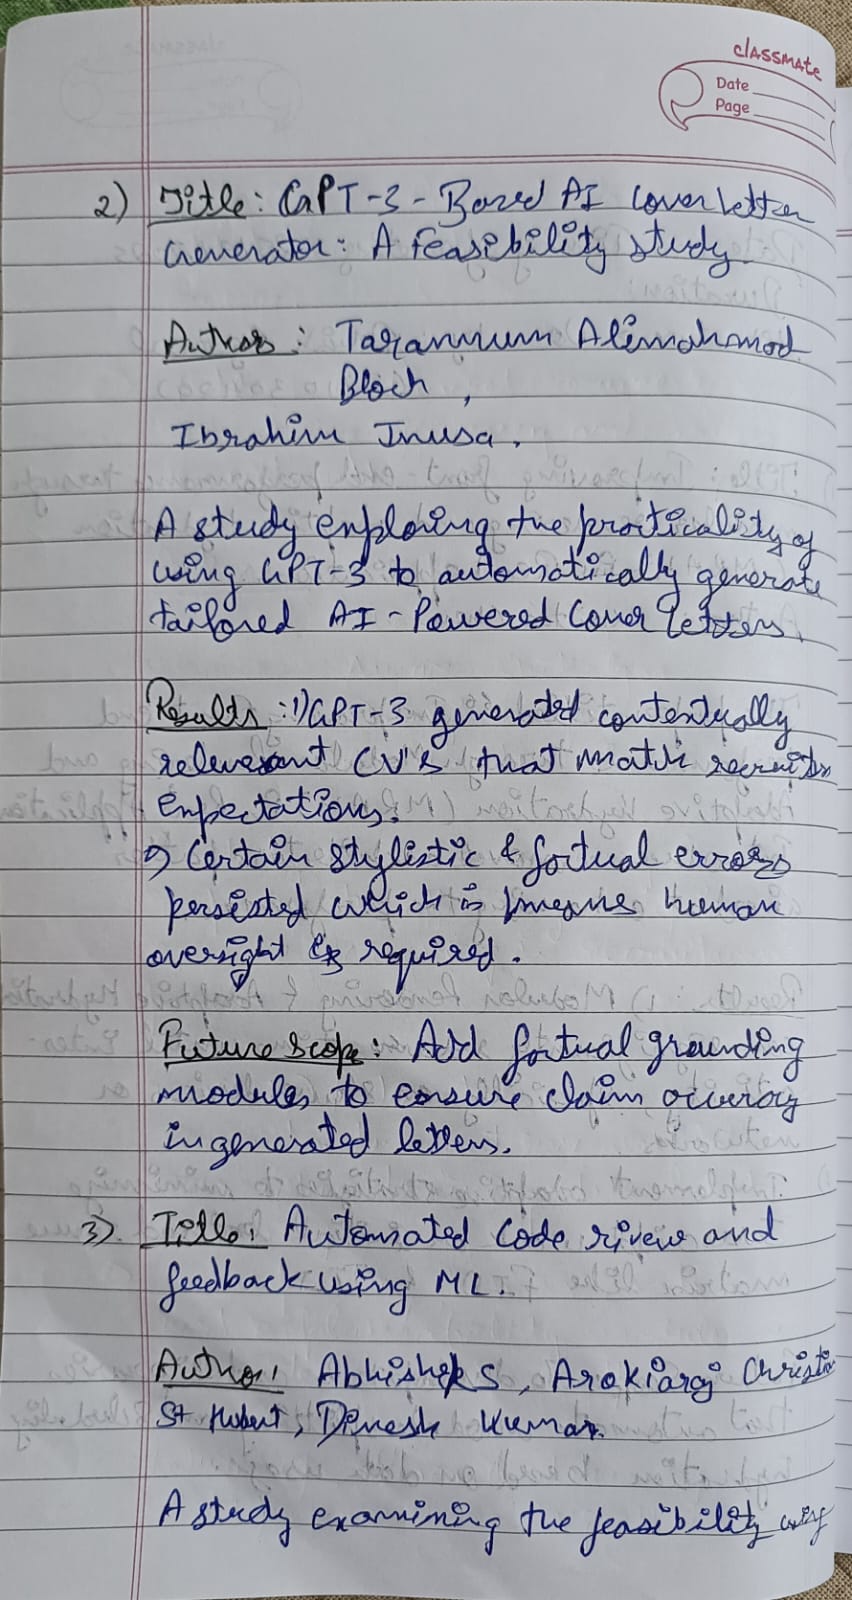 classmate
Date
Page
2) Title: GPT-3-Based AI Cover Letter
Generator: A feasibility study
Authors: Tarannum Alimahamod
Bloch,
Ibrahim Inusa.
A study exploring the practicality of
using GPT-3 to automatically generate
tailored AI-Powered Cover letters.
Results: 1) GPT-3 generated contextually
relevant CV's that match recruiter
expectations.
2) Certain stylistic & factual errors
persisted which is means human
oversight is required.
Future scope: Add factual grounding
modules to ensure claim accuracy
in generated letters.
3) Title: Automated Code riview and
feedback using ML.
Author: Abhishek S, Arokiaraj Christin
St Hubert, Dinesh Kumar.
A study examining the feasibility using